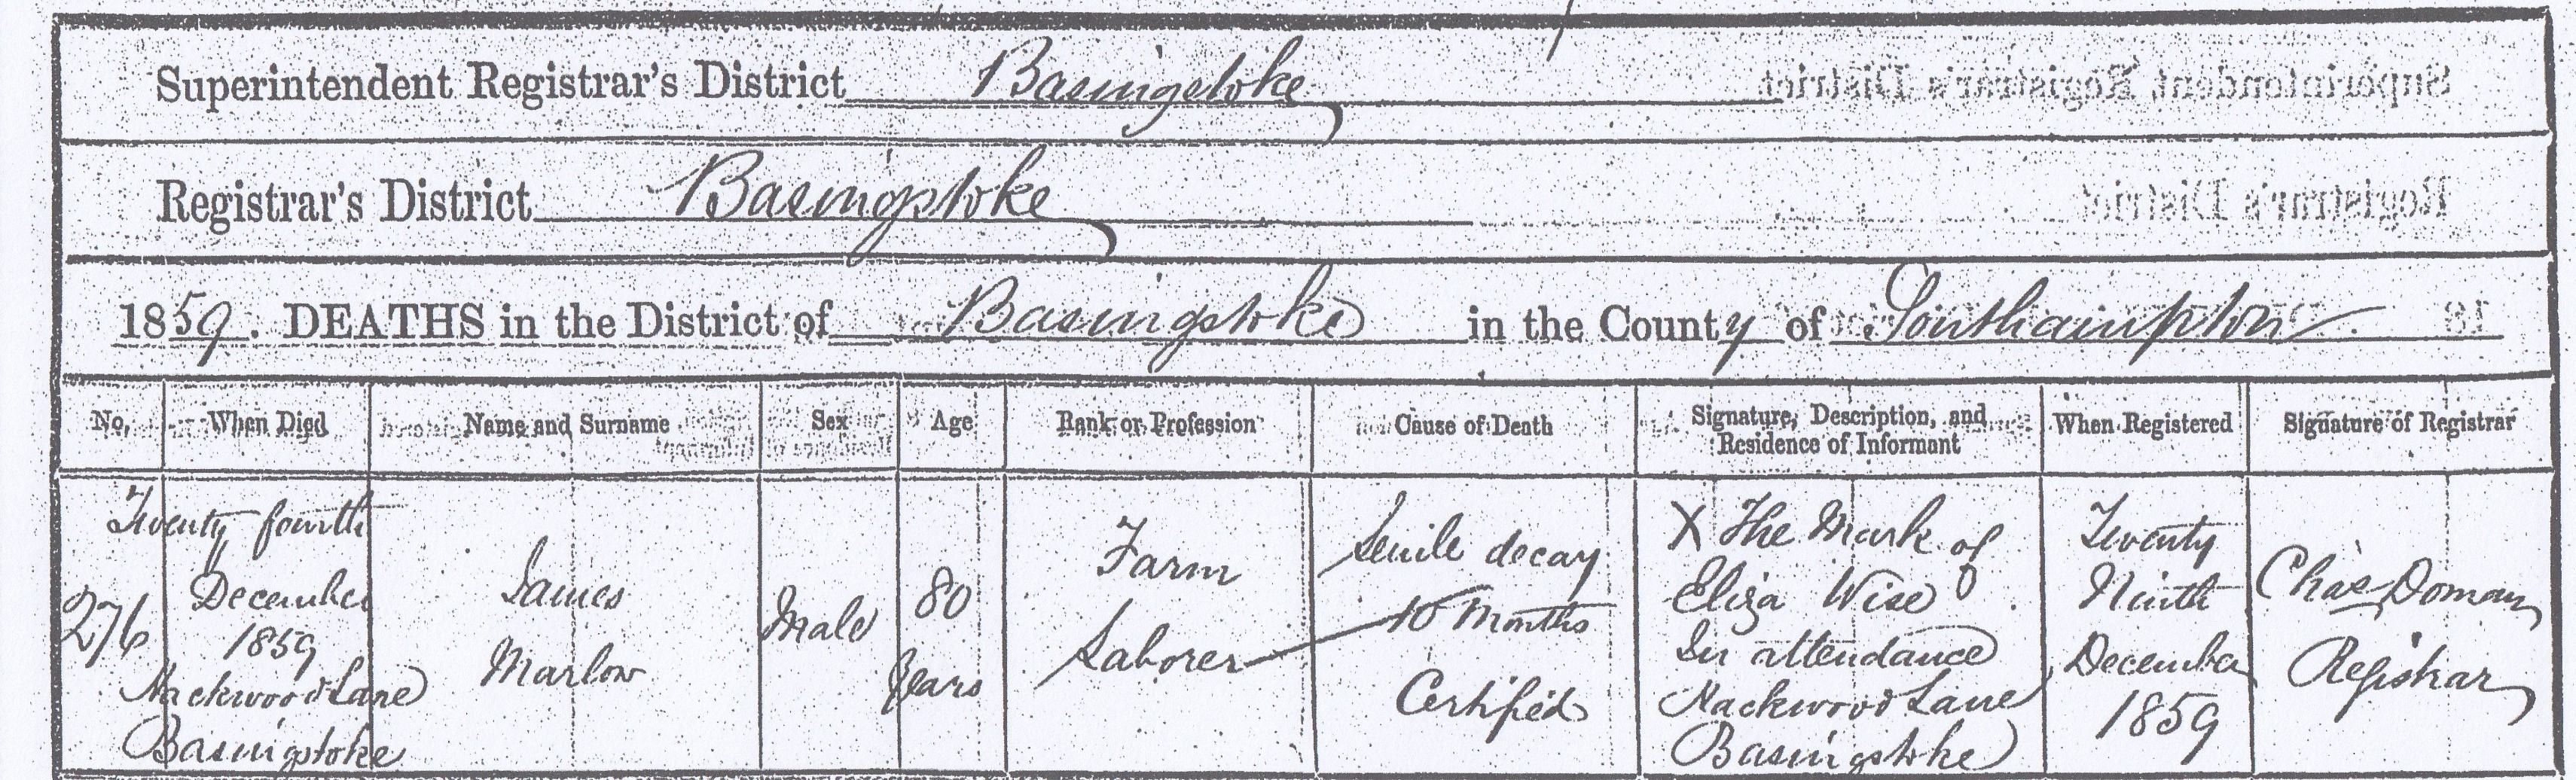 Superintendent Registrar's District Basingstoke
Registrar's District Basingstoke
1859. DEATHS in the District of Basingstoke in the County of Southampton
No. When Died Name and Surname Sex Age Rank or Profession Cause of Death Signature, Description, and Residence of Informant When Registered Signature of Registrar
276
Twenty fourth
December
1859
Hackwood Lane
Basingstoke
James
Marlow
Male
80
years
Farm
Laborer
Senile decay
10 Months
Certified
X The Mark of
Eliza Wise
In attendance
Hackwood Lane
Basingstoke
Twenty
Ninth
December
1859
Chas Doman
Registrar